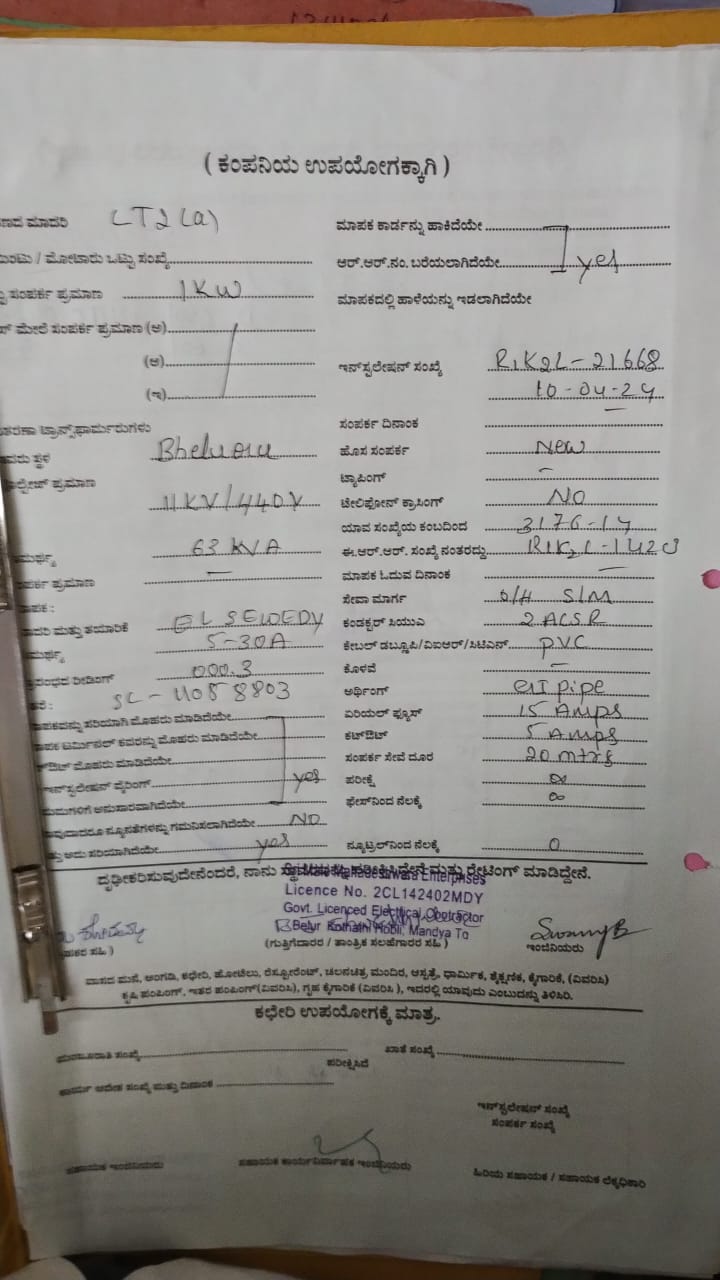 ( ಕಂಪನಿಯ ಉಪಯೋಗಕ್ಕಾಗಿ )
ಮಾದರಿ LT2(a)
ಮಾಪಕ ಕಾರ್ಡನ್ನು ಹಾಕಿದೆಯೇ
/ ಮೋಟಾರು ಒಟ್ಟು ಸಂಖ್ಯೆ
ಆರ್.ಆರ್.ನಂ. ಬರೆಯಲಾಗಿದೆಯೇ yes
ಸಂಪರ್ಕ ಪ್ರಮಾಣ 1KW
ಮಾಪಕದಲ್ಲಿ ಹಾಳೆಯನ್ನು ಇಡಲಾಗಿದೆಯೇ
ಮೇಲೆ ಸಂಪರ್ಕ ಪ್ರಮಾಣ (ಅ)
(ಆ)
(ಇ)
ಇನ್‌ಸ್ಟಲೇಷನ್ ಸಂಖ್ಯೆ R1K2L-21668
10-04-24
ಟ್ರಾನ್ಸ್‌ಫಾರ್ಮರುಗಳು
ಸಂಪರ್ಕ ದಿನಾಂಕ
ಸ್ಥಳ
ಹೊಸ ಸಂಪರ್ಕ New
ಪ್ರಮಾಣ 11KV/440V
ಟ್ಯಾಪಿಂಗ್ –
ಟೆಲಿಫೋನ್ ಕ್ರಾಸಿಂಗ್ NO
ಯಾವ ಸಂಖ್ಯೆಯ ಕಂಬದಿಂದ 3176-14
63 KVA
ಈ.ಆರ್.ಆರ್. ಸಂಖ್ಯೆ ನಂತರದ್ದು
ಪ್ರಮಾಣ –
ಮಾಪಕ ಓದುವ ದಿನಾಂಕ –
ಸೇವಾ ಮಾರ್ಗ O/H S/M
ಮತ್ತು ತಯಾರಿಕೆ EL SEWEDY
ಕಂಡಕ್ಟರ್ ಸಿಯುಎ 2 ACSR
5-30A
ಕೇಬಲ್ ಡಬ್ಲ್ಯೂಪಿ/ವಿಐಆರ್/ಸಿಟಿಎಸ್ PVC
ರೀಡಿಂಗ್ 000.3
ಕೊಳವೆ –
SL-11058803
ಅರ್ಥಿಂಗ್ GI pipe
ಸರಿಯಾಗಿ ಮೊಹರು ಮಾಡಿದೆಯೇ
ಏರಿಯಲ್ ಫ್ಯೂಸ್ 15 Amps
ಟರ್ಮಿನಲ್ ಕವರನ್ನು ಮೊಹರು ಮಾಡಿದೆಯೇ
ಕಟ್‌ಔಟ್ 5 Amps
ಮೊಹರು ಮಾಡಿದೆಯೇ
ಸಂಪರ್ಕ ಸೇವೆ ದೂರ 20 mtrs
ಇನ್‌ಸ್ಟಲೇಷನ್ ವೈರಿಂಗ್ yes
ಪರೀಕ್ಷೆ ∞
ಅನುಸಾರವಾಗಿದೆಯೇ
ಫೇಸ್‌ನಿಂದ ನೆಲಕ್ಕೆ ∞
ನ್ಯೂನತೆಗಳನ್ನು ಗಮನಿಸಲಾಗಿದೆಯೇ NO
ಅದು ಸರಿಯಾಗಿದೆಯೇ yes
ನ್ಯೂಟ್ರಲ್‌ನಿಂದ ನೆಲಕ್ಕೆ 0
ದೃಢೀಕರಿಸುವುದೇನೆಂದರೆ, ನಾನು ಮತ್ತು ರೇಟಿಂಗ್ ಮಾಡಿದ್ದೇನೆ.
Enterprises
Licence No. 2CL142402MDY
Govt. Licenced Electrical Contractor
Belur Kothathi Hobli, Mandya Tq
Swamy B
ಸಹಿ )
(ಗುತ್ತಿಗೆದಾರರ / ತಾಂತ್ರಿಕ ಸಲಹೆಗಾರರ ಸಹಿ )
ಇಂಜಿನಿಯರು
ವಾಸದ ಮನೆ, ಅಂಗಡಿ, ಕಛೇರಿ, ಹೋಟೆಲು, ರೆಸ್ಟೋರೆಂಟ್, ಚಲನಚಿತ್ರ ಮಂದಿರ, ಆಸ್ಪತ್ರೆ, ಧಾರ್ಮಿಕ, ಶೈಕ್ಷಣಿಕ, ಕೈಗಾರಿಕೆ, (ವಿವರಿಸಿ)
ಕೃಷಿ ಪಂಪಿಂಗ್, ಇತರ ಪಂಪಿಂಗ್(ವಿವರಿಸಿ), ಗೃಹ ಕೈಗಾರಿಕೆ (ವಿವರಿಸಿ ), ಇದರಲ್ಲಿ ಯಾವುದು ಎಂಬುದನ್ನು ತಿಳಿಸಿರಿ.
ಕಛೇರಿ ಉಪಯೋಗಕ್ಕೆ ಮಾತ್ರ.
ಮಂಜೂರಾತಿ ಸಂಖ್ಯೆ
ಖಾತೆ ಸಂಖ್ಯೆ
ಪರೀಕ್ಷಿಸಿದೆ
ಕಾರ್ಯ ಆದೇಶ ಸಂಖ್ಯೆ ಮತ್ತು ದಿನಾಂಕ
ಇನ್‌ಸ್ಟಲೇಷನ್ ಸಂಖ್ಯೆ
ಸಂಪರ್ಕ ಸಂಖ್ಯೆ
ಸಹಾಯಕ ಇಂಜಿನಿಯರು
ಸಹಾಯಕ ಕಾರ್ಯನಿರ್ವಾಹಕ ಇಂಜಿನಿಯರು
ಹಿರಿಯ ಸಹಾಯಕ / ಸಹಾಯಕ ಲೆಕ್ಕಾಧಿಕಾರಿ